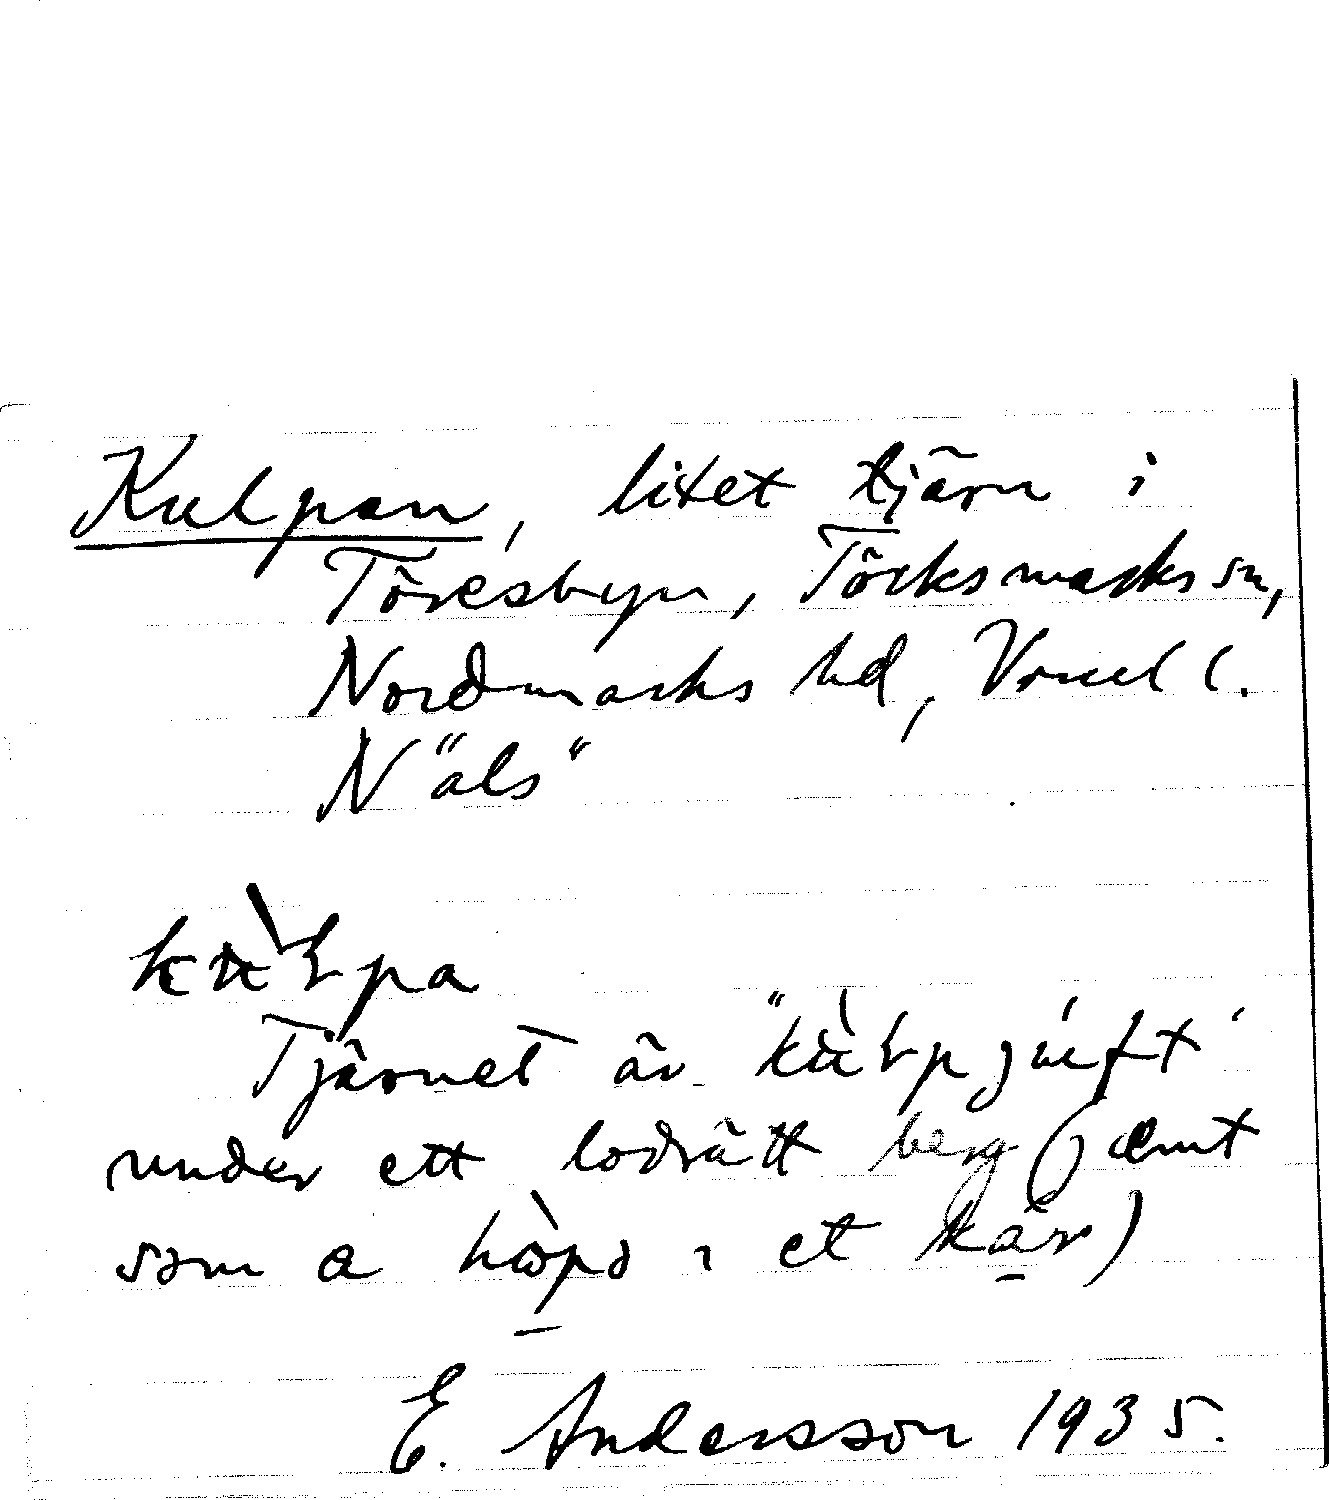 Kulpan, litet tjärn i
Töresbyn, Töcksmarks sn,
Nordmarks hd, Vrml l.
N "äls"
Tjärnet är
under ett lodrätt berg (jæmt
som a i et kar)
E. Andersson 1935.